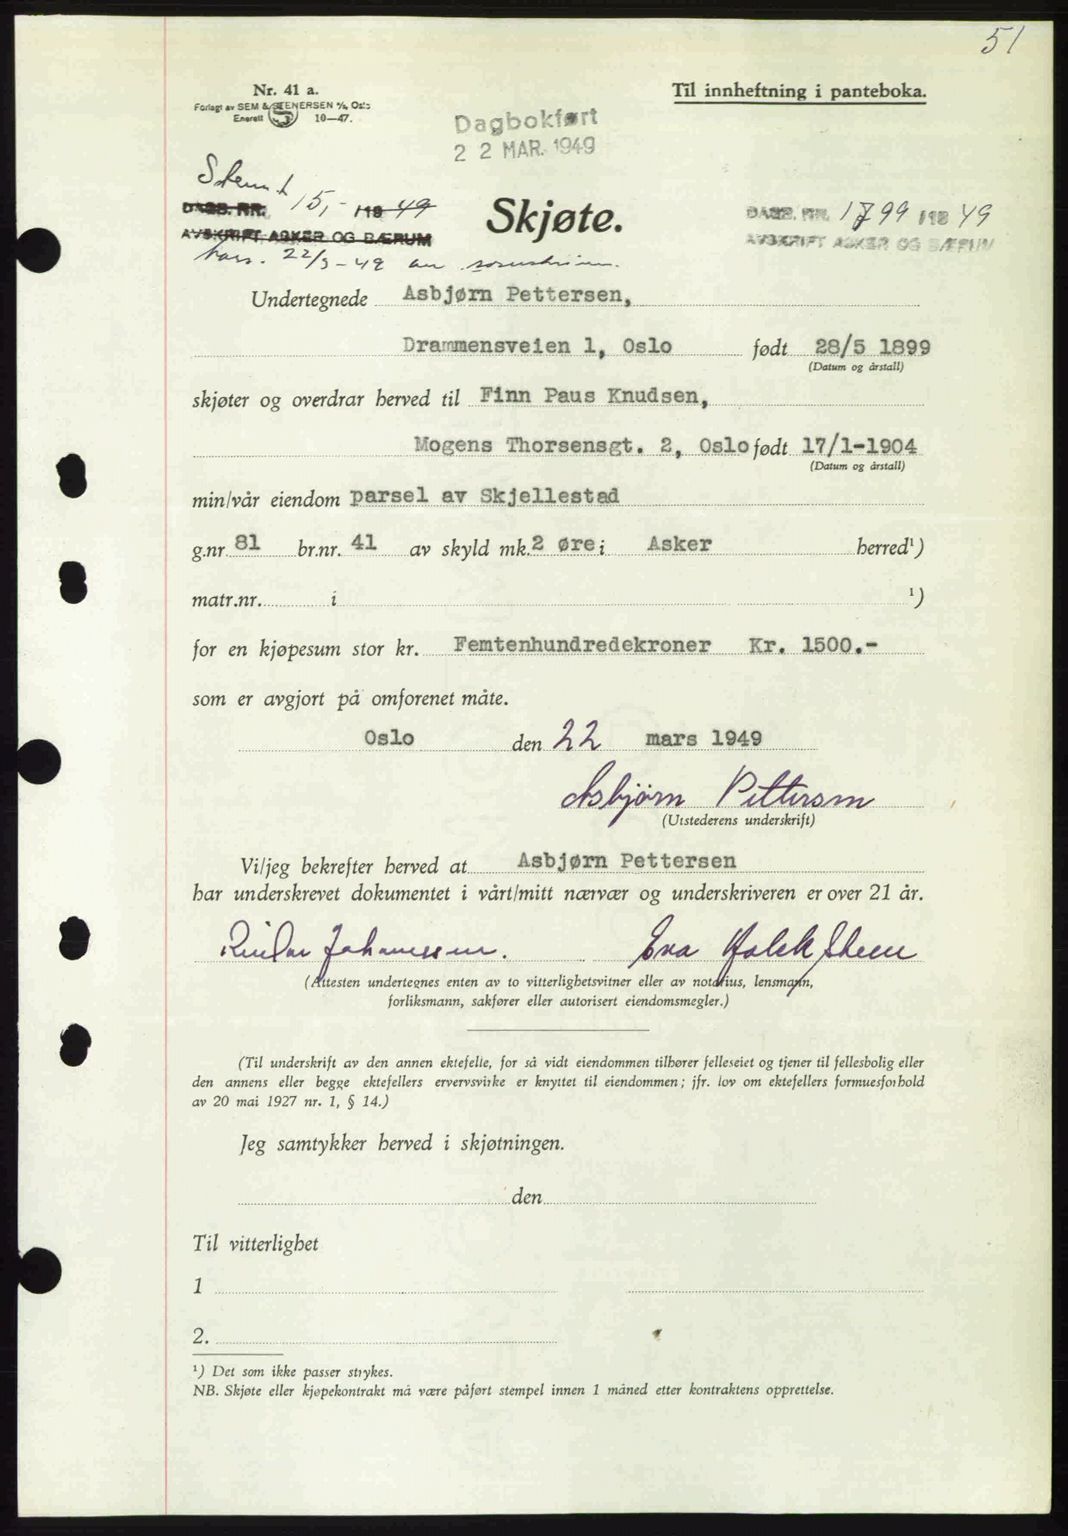 51
Nr. 41 a.
Til innheftning i panteboka.
Forlagt av SEM & STENERSEN A/S, Oslo
Enerett S 10—47.
Dagbokført
22 MAR. 1949
15,-
DAGB. NR. /19 49
DAGB. NR. 1799 /19 49
Skjøte.
AVSKRIFT ASKER OG BÆRUM
AVSKRIFT ASKER OG BÆRUM
22/3-49 av
Undertegnede Asbjørn Pettersen,
Drammensveien 1, Oslo født 28/5 1899
(Datum og årstall)
skjøter og overdrar herved til Finn Paus Knudsen,
Mogens Thorsensgt. 2, Oslo født 17/1-1904
(Datum og årstall)
min/vår eiendom parsel av Skjellestad
g.nr. 81 br.nr. 41 av skyld mk. 2 øre i Asker herred¹)
matr.nr. i ¹)
for en kjøpesum stor kr. Femtenhundredekroner Kr. 1500.-
som er avgjort på omforenet måte.
Oslo den 22 mars 1949
Asbjørn Pettersen
(Utstederens underskrift)
Vi/jeg bekrefter herved at Asbjørn Pettersen
har underskrevet dokumentet i vårt/mitt nærvær og underskriveren er over 21 år.
Johannessen. Eva
(Attesten undertegnes enten av to vitterlighetsvitner eller av notarius, lensmann,
forliksmann, sakfører eller autorisert eiendomsmegler.)
(Til underskrift av den annen ektefelle, for så vidt eiendommen tilhører felleseiet og tjener til fellesbolig eller
den annens eller begge ektefellers ervervsvirke er knyttet til eiendommen; jfr. lov om ektefellers formuesforhold
av 20 mai 1927 nr. 1, § 14.)
Jeg samtykker herved i skjøtningen.
den
Til vitterlighet
1
2.
¹) Det som ikke passer strykes.
NB. Skjøte eller kjøpekontrakt må være påført stempel innen 1 måned etter kontraktens opprettelse.